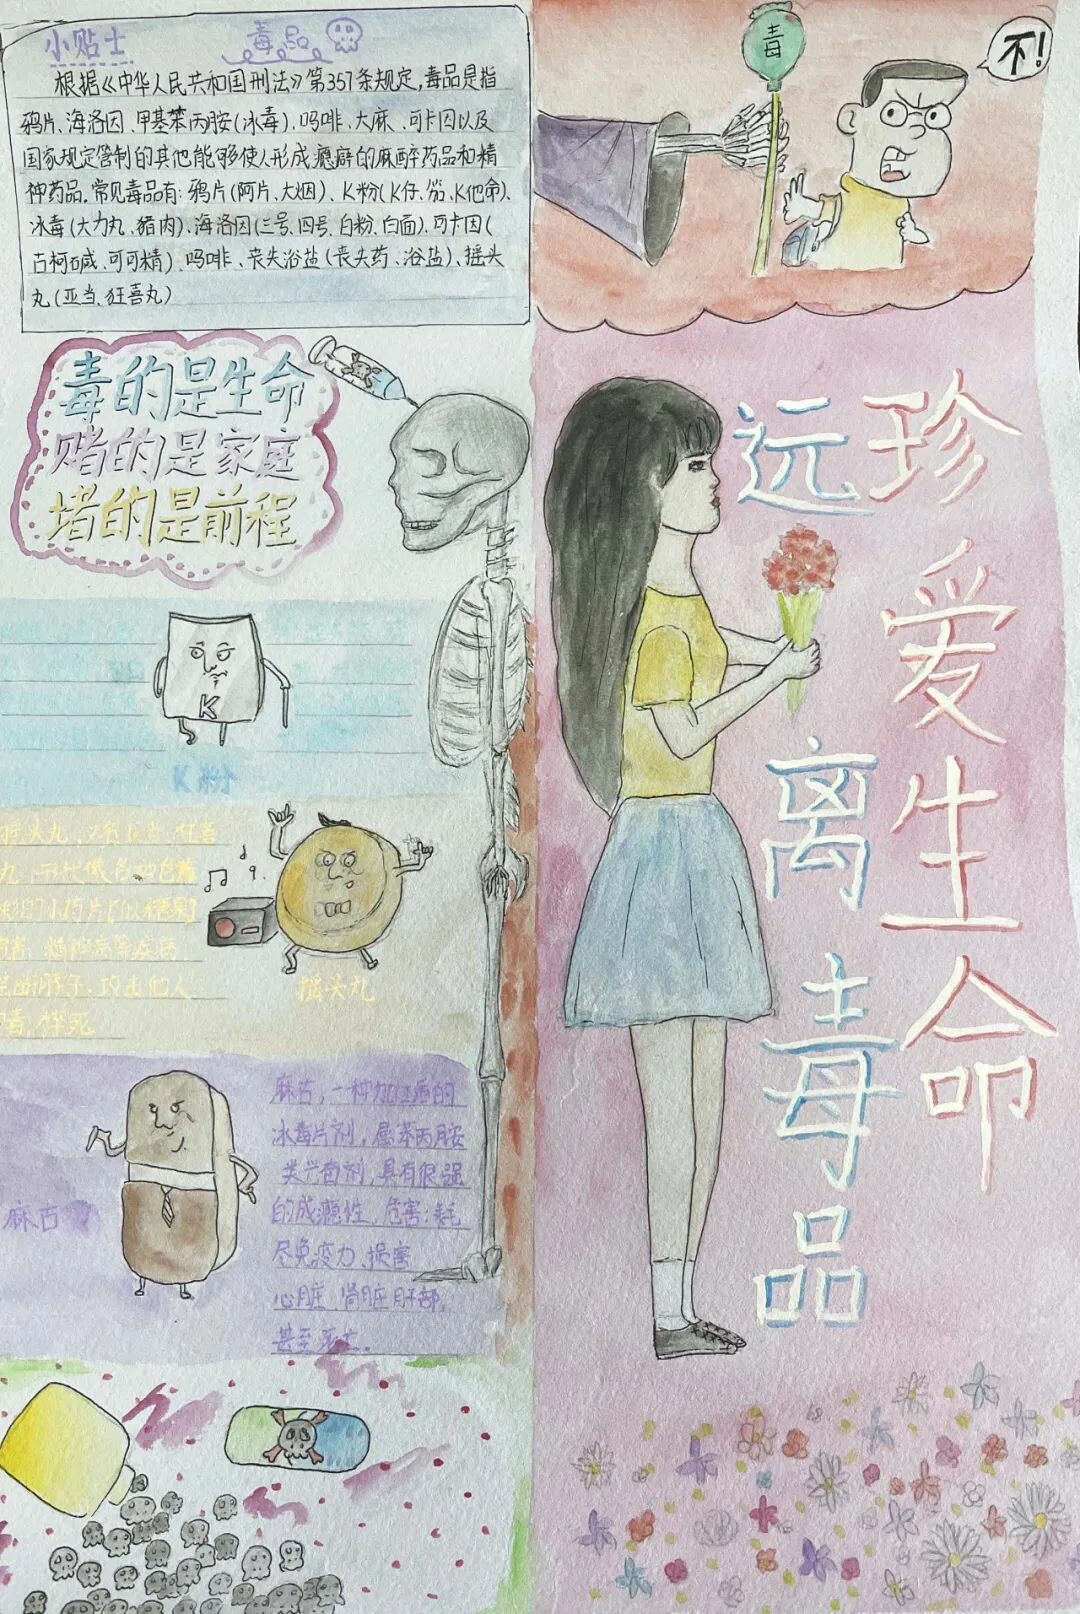 小贴士
毒品
根据《中华人民共和国刑法》第357条规定,毒品是指
鸦片、海洛因、甲基苯丙胺(冰毒)、吗啡、大麻、可卡因以及
国家规定管制的其他能够使人形成瘾癖的麻醉药品和精
神药品。常见毒品有:鸦片(阿片、大烟)、K粉(K仔、K他命)、
冰毒(大力丸、猪肉)、海洛因(三号、四号、白粉、白面)、可卡因(
古柯碱、可可精)、吗啡、丧失浴盐(丧失药、浴盐)、摇头
丸(亚当、狂喜丸)
毒
不!
毒的是生命
赌的是家庭
堵的是前程
珍爱生命
远离毒品
K
K粉
摇头丸
狂喜
精神病等疾病
攻击他人
猝死
摇头丸
麻古
麻古,一种加工后的
冰毒片剂,属苯丙胺
类兴奋剂,具有很强
的成瘾性,危害:耗
尽免疫力、损害
心脏、肾脏、肝部,
甚至死亡。